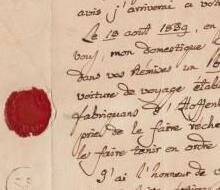 avis j'arriverai a vo
Le 13 aout 1839, en
vous, mon domestique
dans vos Remises un
voiture de voyage établ
fabriquans d'Offen
priés de le faire reche
le faire tenir en ordre
J'ai l'honneur de